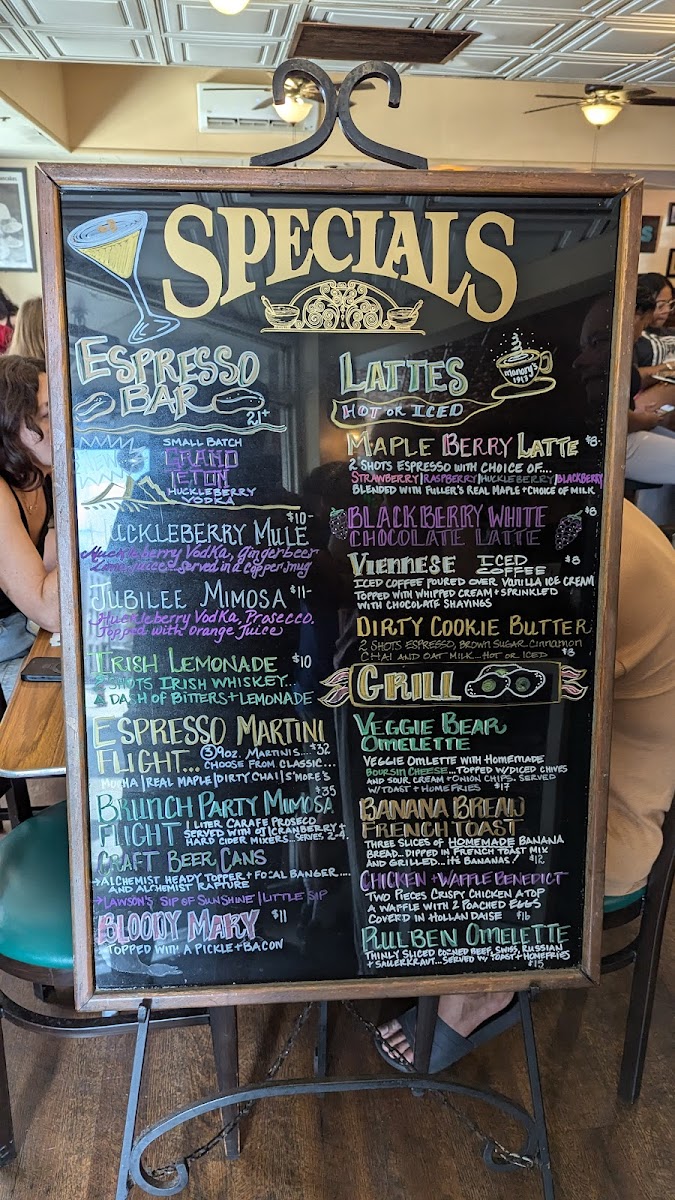 SPECIALS
ESPRESSO
BAR
21+
SMALL BATCH
GRAND
TETON
HUCKLEBERRY
VODKA
HUCKLEBERRY MULE $10-
Huckleberry Vodka, gingerbeer
Lime juice... served in a copper mug
JUBILEE MIMOSA $11-
Huckleberry Vodka, Prosecco.
Topped with Orange Juice
IRISH LEMONADE $10
2 SHOTS IRISH WHISKEY...
A DASH OF BITTERS + LEMONADE
ESPRESSO MARTINI
FLIGHT... ③ 9oz. MARTINIS.... $32
CHOOSE FROM CLASSIC...
MOCHA | REAL MAPLE | DIRTY CHAI | S'MORES
BRUNCH PARTY MIMOSA $35
FLIGHT 1 LITER CARAFE PROSECO
SERVED WITH OJ CRANBERRY +
HARD CIDER MIXERS... SERVES 2-4
CRAFT BEER CANS
→ ALCHEMIST HEADY TOPPER + FOCAL BANGER....
AND ALCHEMIST RAPTURE
→ LAWSON'S SIP OF SUNSHINE | LITTLE SIP
BLOODY MARY $11
- TOPPED WITH A PICKLE + BACON
LATTES
HOT OR ICED
1913
MAPLE BERRY LATTE $8-
2 SHOTS ESPRESSO WITH CHOICE OF...
STRAWBERRY | RASPBERRY | HUCKLEBERRY | BLACKBERRY
BLENDED WITH FULLER'S REAL MAPLE + CHOICE OF MILK
BLACKBERRY WHITE $8
CHOCOLATE LATTE
VIENNESE ICED COFFEE $8
ICED COFFEE POURED OVER VANILLA ICE CREAM
TOPPED WITH WHIPPED CREAM + SPRINKLED
WITH CHOCOLATE SHAVINGS
DIRTY COOKIE BUTTER
2 SHOTS ESPRESSO, BROWN SUGAR- CINNAMON
CHAI AND OAT MILK... HOT OR ICED $8
GRILL
VEGGIE BEAR
OMELETTE
VEGGIE OMLETTE WITH HOMEMADE
BOURSIN CHEESE... TOPPED W/DICED CHIVES
AND SOUR CREAM + ONION CHIPS. SERVED
W/TOAST + HOMEFRIES $17
BANANA BREAD
FRENCH TOAST
THREE SLICES OF HOMEMADE BANANA
BREAD... DIPPED IN FRENCH TOAST MIX
AND GRILLED... ITS BANANAS! $12
CHICKEN + WAFFLE BENEDICT
TWO PIECES CRISPY CHICKEN ATOP
A WAFFLE WITH 2 POACHED EGGS
COVERD IN HOLLANDAISE $16
RUEBEN OMELETTE
THINLY SLICED CORNED BEEF, SWISS, RUSSIAN
+ SAUERKRAUT... SERVED W/ TOAST + HOMEFRIES
$15